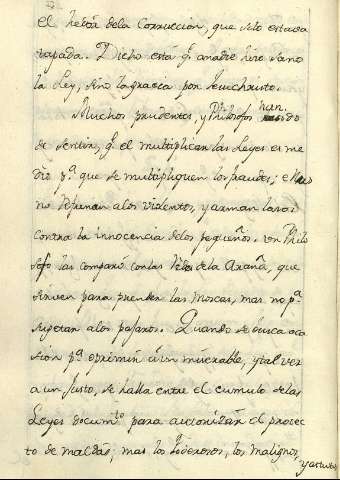 el hedor dela Corrupcion, que solo estava
tapada. Dicho está q.e anadie hizo sano
la Ley, sino la gracia por Jesuchristo.
Muchos prudentes, y Philosofos han
de sentir, q.e el multiplicar las Leyes es me
dio p.a que se multipliquen los fraudes; e
no refrenan alos violentos, y arman lazos
contra la innocencia delos pequeños. Un Philo
sofo las comparó con las telas de la Araña, que
sirven para prender las moscas, mas no p.a
sugetar a los pajaros. Quando se busca oca
sion p.a oprimir à un miserable, y tal vez
a un Justo, se halla entre el cumulo de las
Leyes docum.to para autorizar el proyec
to de maldad; mas los Poderosos, los malignos,
y astutos